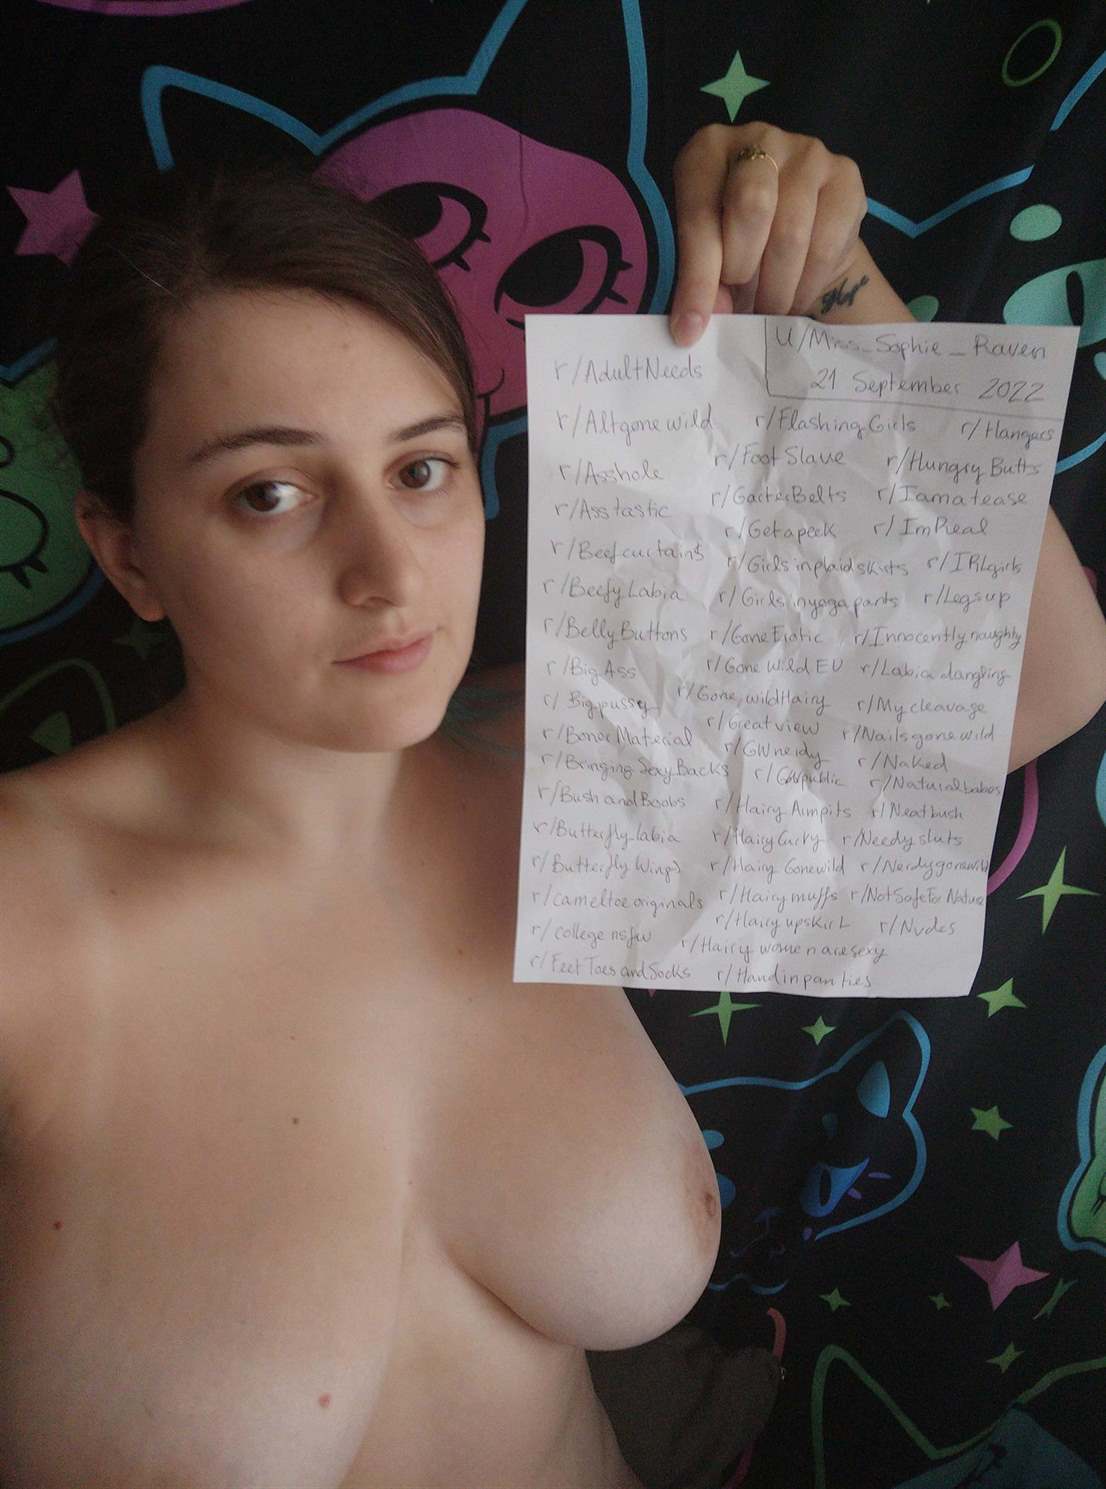 u/Miss_Sophie_Raven
21 September 2022
r/AdultNeeds
r/Altgonewild
r/Asshole
r/Asstastic
r/Beefcurtains
r/BeefyLabia
r/BellyButtons
r/BigAss
r/Bigpussy
r/BonerMaterial
r/BringingSexyBacks
r/BushandBoobs
r/Butterfly_labia
r/ButterflyWings
r/cameltoeoriginals
r/collegensfw
r/FeetToesandSocks
r/FlashingGirls
r/FootSlave
r/GarterBelts
r/Getapeek
r/Girlsinplaidskirts
r/Girlsinyogapants
r/GoneErotic
r/GoneWildEU
r/GonewildHairy
r/Greatview
r/GWnerdy
r/GWpublic
r/HairyArmpits
r/HairyCurvy
r/HairyGonewild
r/Hairymuffs
r/Hairyupskirt
r/Hairywomenaresexy
r/Handinpanties
r/Hangers
r/HungryButts
r/Iamatease
r/ImReal
r/IRLgirls
r/Legsup
r/Innocentlynaughty
r/Labiadangling
r/Mycleavage
r/Nailsgonewild
r/Naked
r/Naturalbabes
r/Neatbush
r/Needysluts
r/Nerdygonewild
r/NotSafeForNature
r/Nudes
Hope